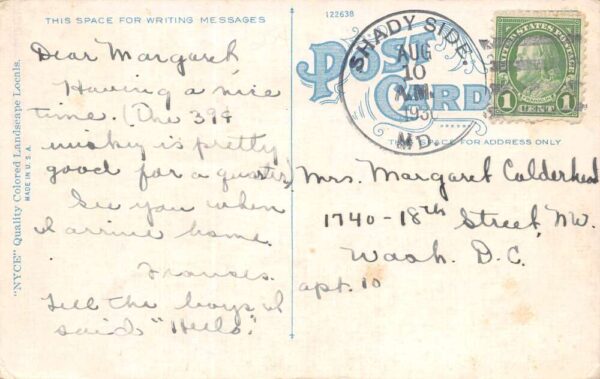 THIS SPACE FOR WRITING MESSAGES
122638
Dear Margaret
Having a nice
time. (The 39¢
is pretty
good for a quarter)
See you when
I arrive home.
Frances.
Tell the boys I
said "Hello."
"NYCE" Quality Colored Landscape Locals.
MADE IN U.S.A.
POST
CARD
SHADY SIDE.
AUG
10
A.M.
MD.
UNITED STATES POSTAGE
FRANKLIN
1 1
CENT
THIS SPACE FOR ADDRESS ONLY
Mrs. Margaret Calderhead
1740-18th Street, NW.
Wash. D.C.
apt. 10